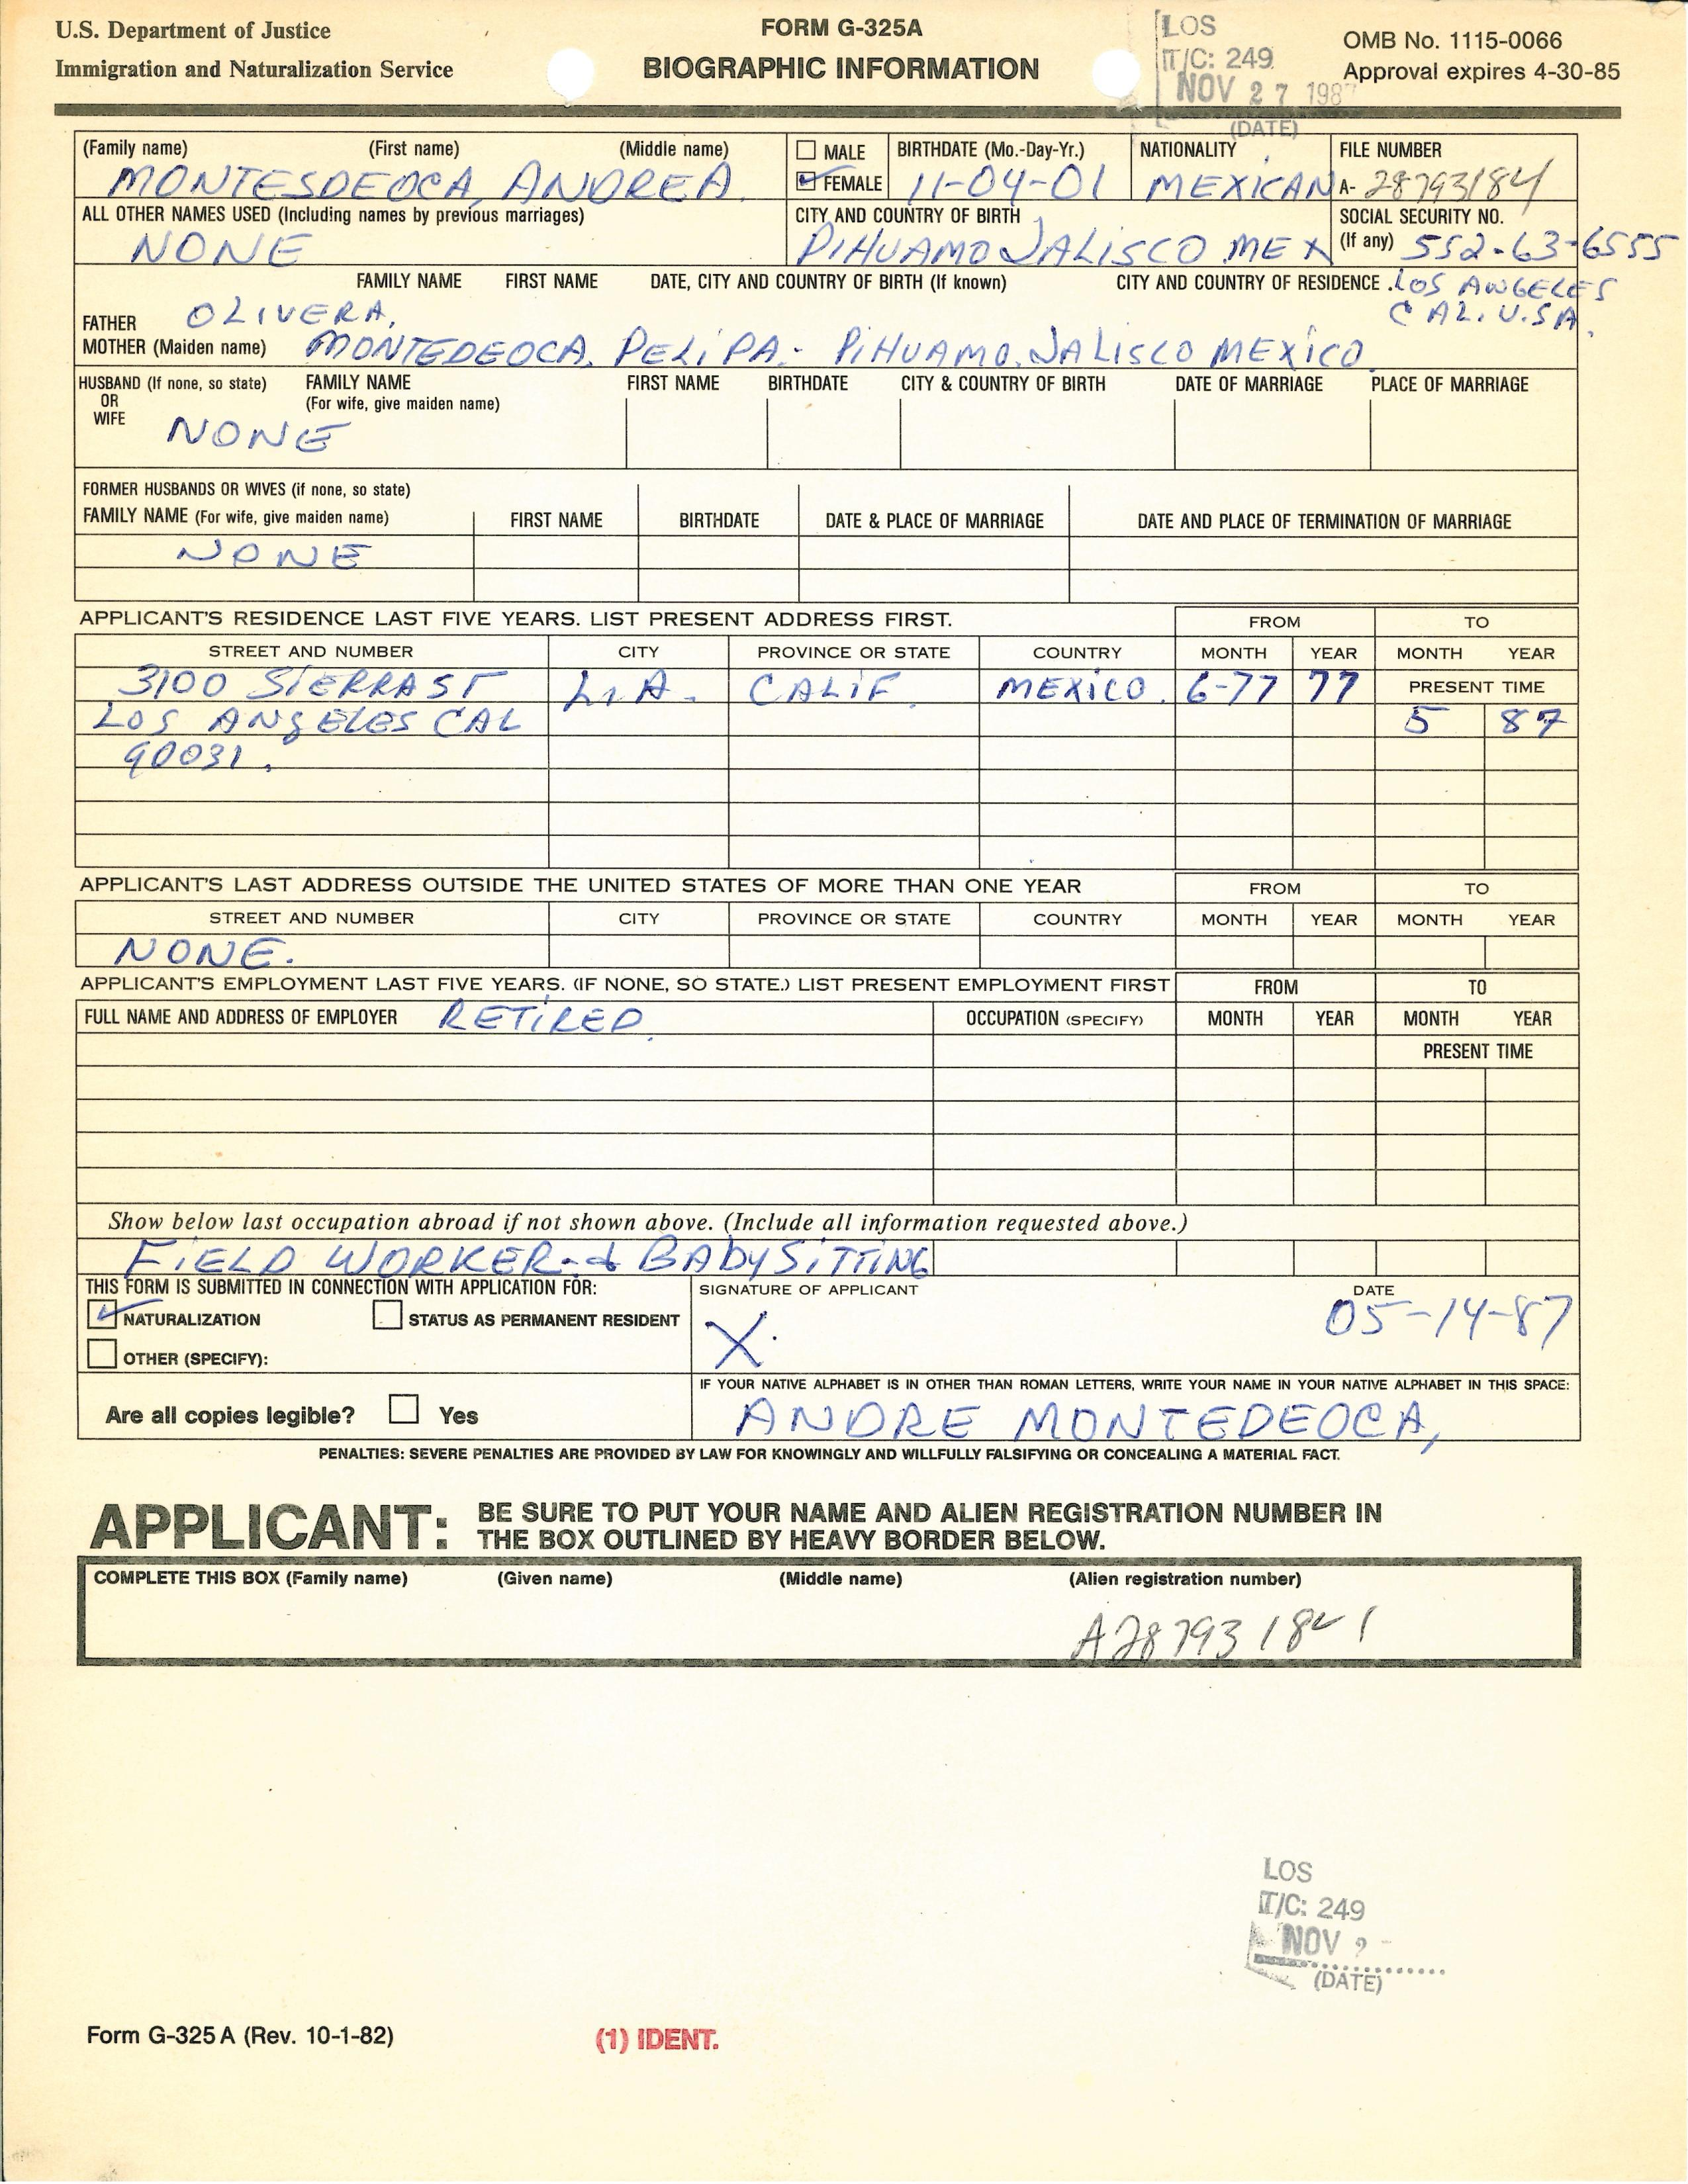 U.S. Department of Justice
Immigration and Naturalization Service
FORM G-325A
BIOGRAPHIC INFORMATION
LOS
T/C: 249
NOV 27 198
(DATE)
OMB No. 1115-0066
Approval expires 4-30-85
(Family name) (First name) (Middle name)
MONTESDEOCA, ANDREA.
MALE
FEMALE
BIRTHDATE (Mo.-Day-Yr.)
11-04-01
NATIONALITY
MEXICAN
FILE NUMBER
A- 28793184
ALL OTHER NAMES USED (Including names by previous marriages)
NONE
CITY AND COUNTRY OF BIRTH
PIHUAMO JALISCO MEX
SOCIAL SECURITY NO.
(If any) 552-63-6555
FAMILY NAME FIRST NAME DATE, CITY AND COUNTRY OF BIRTH (If known) CITY AND COUNTRY OF RESIDENCE
LOS ANGELES
CAL. U.S.A.
FATHER OLIVERA,
MOTHER (Maiden name) MONTEDEOCA. PELIPA.- PIHUAMO. JALISCO MEXICO.
HUSBAND (If none, so state)
OR
WIFE
FAMILY NAME
(For wife, give maiden name)
FIRST NAME BIRTHDATE CITY & COUNTRY OF BIRTH DATE OF MARRIAGE PLACE OF MARRIAGE
NONE
FORMER HUSBANDS OR WIVES (if none, so state)
FAMILY NAME (For wife, give maiden name) FIRST NAME BIRTHDATE DATE & PLACE OF MARRIAGE DATE AND PLACE OF TERMINATION OF MARRIAGE
NONE
APPLICANT'S RESIDENCE LAST FIVE YEARS. LIST PRESENT ADDRESS FIRST. FROM TO
STREET AND NUMBER CITY PROVINCE OR STATE COUNTRY MONTH YEAR MONTH YEAR
3100 SIERRA ST L.A. CALIF. MEXICO. 6-77 77 PRESENT TIME
LOS ANgELES CAL 5 87
90031.
APPLICANT'S LAST ADDRESS OUTSIDE THE UNITED STATES OF MORE THAN ONE YEAR FROM TO
STREET AND NUMBER CITY PROVINCE OR STATE COUNTRY MONTH YEAR MONTH YEAR
NONE.
APPLICANT'S EMPLOYMENT LAST FIVE YEARS. (IF NONE, SO STATE.) LIST PRESENT EMPLOYMENT FIRST FROM TO
FULL NAME AND ADDRESS OF EMPLOYER RETIRED. OCCUPATION (SPECIFY) MONTH YEAR MONTH YEAR
PRESENT TIME
Show below last occupation abroad if not shown above. (Include all information requested above.)
FIELD WORKER-& BAbySITTING
THIS FORM IS SUBMITTED IN CONNECTION WITH APPLICATION FOR:
NATURALIZATION STATUS AS PERMANENT RESIDENT
OTHER (SPECIFY):
SIGNATURE OF APPLICANT DATE
X. 05-14-87
Are all copies legible? Yes
IF YOUR NATIVE ALPHABET IS IN OTHER THAN ROMAN LETTERS, WRITE YOUR NAME IN YOUR NATIVE ALPHABET IN THIS SPACE:
ANDRE MONTEDEOCA,
PENALTIES: SEVERE PENALTIES ARE PROVIDED BY LAW FOR KNOWINGLY AND WILLFULLY FALSIFYING OR CONCEALING A MATERIAL FACT.
APPLICANT: BE SURE TO PUT YOUR NAME AND ALIEN REGISTRATION NUMBER IN
THE BOX OUTLINED BY HEAVY BORDER BELOW.
COMPLETE THIS BOX (Family name) (Given name) (Middle name) (Alien registration number)
A28793184
LOS
T/C: 249
NOV 2
(DATE)
Form G-325 A (Rev. 10-1-82)
(1) IDENT.